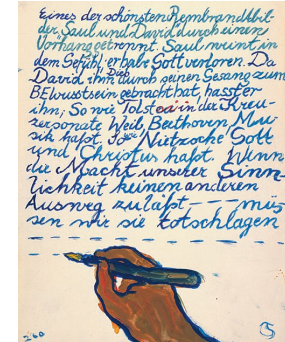 Eines der schönsten Rembrandtbil-
der, Saul und David durch einen
Vorhang getrennt. Saul weint, in
dem Gefühl, er habe Gott verloren. Da
David ihm Dies durch seinen Gesang zum
BEwusstsein gebracht hat, hasst er
ihn; So wie Tolstoi in der Kreu-
zersonate Weil, Beethoven Mu-
sik haßt. So wie Nietzsche Gott
und Christus haßt. Wenn
die Macht unserer Sinn-
lichkeit keinen anderen
Ausweg zuläßt - - - - müs
sen wir sie totschlagen
CS